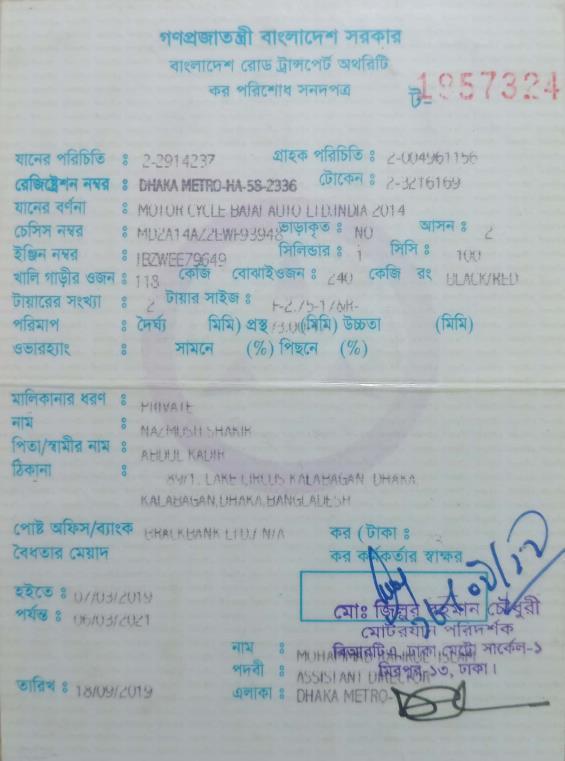 গণপ্রজাতন্ত্রী বাংলাদেশ সরকার
বাংলাদেশ রোড ট্রান্সপোর্ট অথরিটি
কর পরিশোধ সনদপত্র ট-1957324
যানের পরিচিতি : 2-2914237 গ্রাহক পরিচিতি : 2-004961156
রেজিষ্ট্রেশন নম্বর : DHAKA METRO-HA-58-2336 টোকেন : 2-3216169
যানের বর্ণনা : MOTOR CYCLE BAJAJ AUTO LTD.INDIA 2014
চেসিস নম্বর : ভাড়াকৃত : NO আসন : 2
ইঞ্জিন নম্বর : JBZWEE79649 সিলিন্ডার : 1 সিসি : 100
খালি গাড়ীর ওজন : 113 কেজি বোঝাইওজন : 240 কেজি রং BLACK/RED
টায়ারের সংখ্যা : 2 টায়ার সাইজ :
পরিমাপ : দৈর্ঘ্য মিমি) প্রস্থ (মিমি) উচ্চতা (মিমি)
ওভারহ্যাং : সামনে (%) পিছনে (%)
মালিকানার ধরণ : PRIVATE
নাম : NAZMUSH SHAKIR
পিতা/স্বামীর নাম : ABDUL KADIR
ঠিকানা : 89/1, LAKE CIRCUS KALABAGAN, DHAKA,
KALABAGAN,DHAKA,BANGLADESH
পোষ্ট অফিস/ব্যাংক BRACKBANK LTD./ N/A কর (টাকা :
বৈধতার মেয়াদ কর কর্মকর্তার স্বাক্ষর
হইতে : 07/03/2019
পর্যন্ত : 06/03/2021
মোঃ জিল্লুর রহমান চৌধুরী
মোটরযান পরিদর্শক
নাম : MOHAMMAD ISLAM
বিআরটিএ, ঢাকা মেট্রো সার্কেল-১
পদবী : ASSISTANT DIRECTOR
মিরপুর-১৩, ঢাকা।
তারিখ : 18/09/2019 এলাকা : DHAKA METRO-